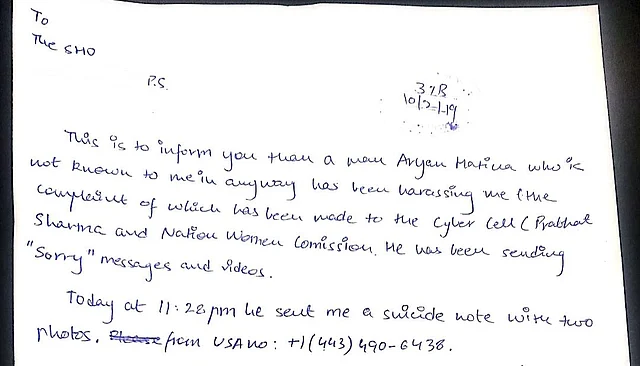 To
The SHO
P.S.
3 % B
10/2/19
This is to inform you than a man Aryan Matina who is
not known to me in anyway has been harassing me (the
complaint of which has been made to the Cyber Cell (Prabhat
Sharma and Nation Women Comission. He has been sending
"Sorry" messages and videos.
Today at 11:28 pm he sent me a suicide note with two
photos. Please from USA no: +1(443) 490-6438.